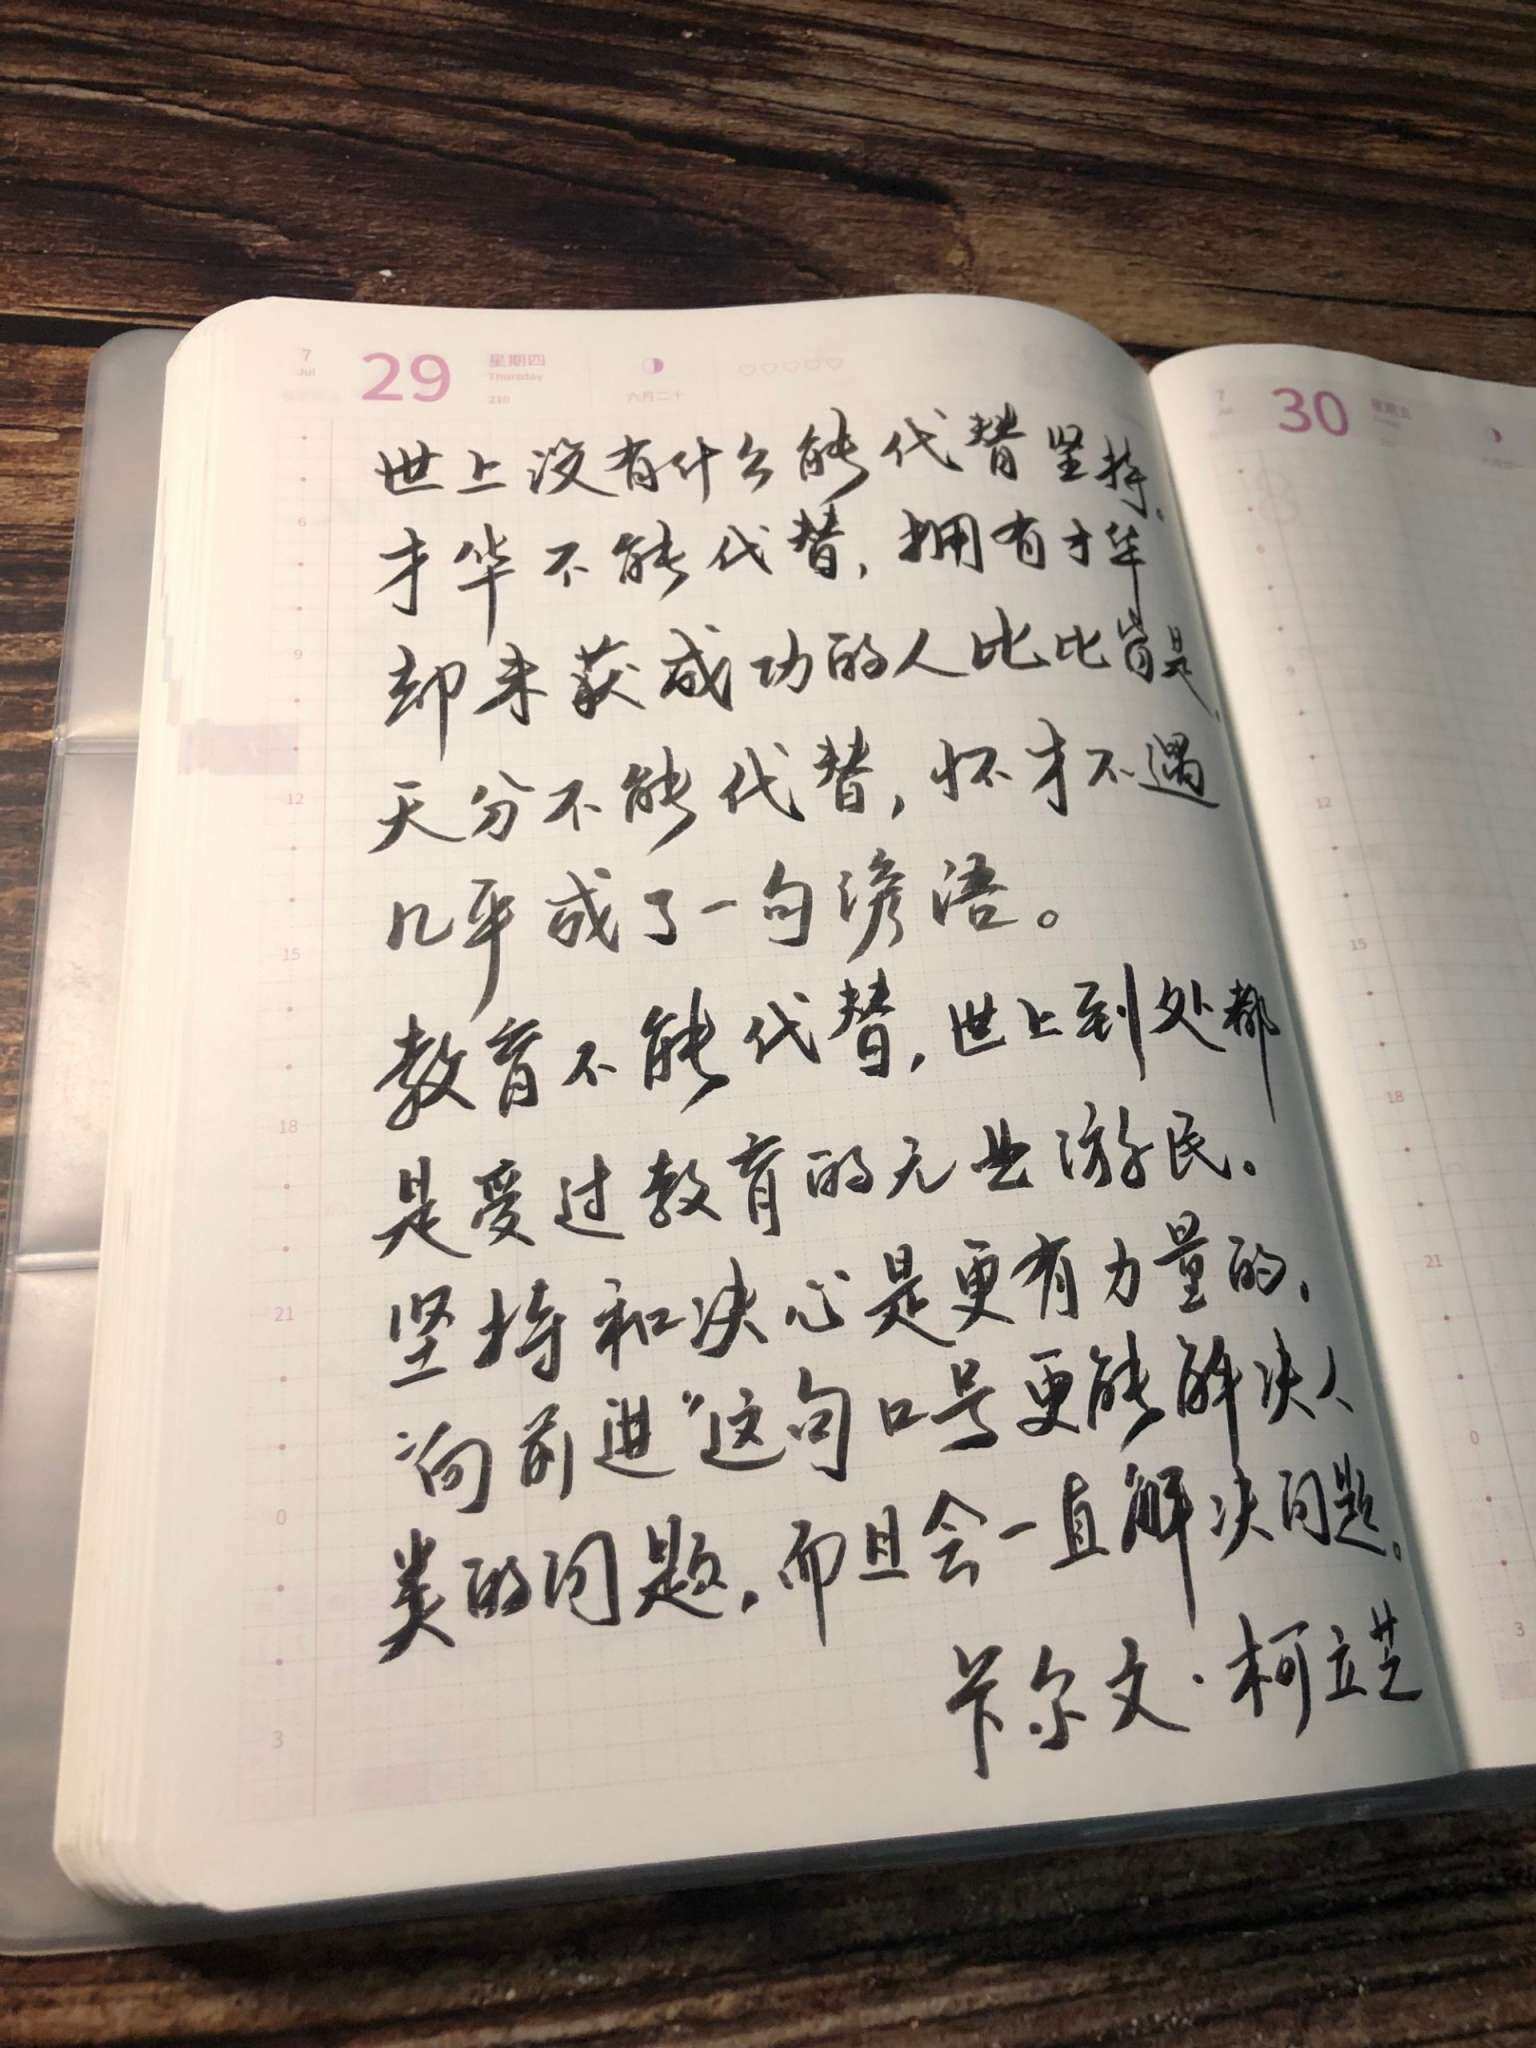 7
Jul
29
星期四
Thursday
210
六月二十
世上没有什么能代替坚持.
才华不能代替,拥有才华
却未获成功的人比比皆是.
天分不能代替,怀才不遇
几乎成了一句谚语。
教育不能代替,世上到处都
是受过教育的无业游民。
坚持和决心是更有力量的,
"向前进"这句口号更能解决人
类的问题,而且会一直解决问题。
卡尔文·柯立芝
6
9
12
15
18
21
0
3
7
30
星期五
12
15
18
21
0
3